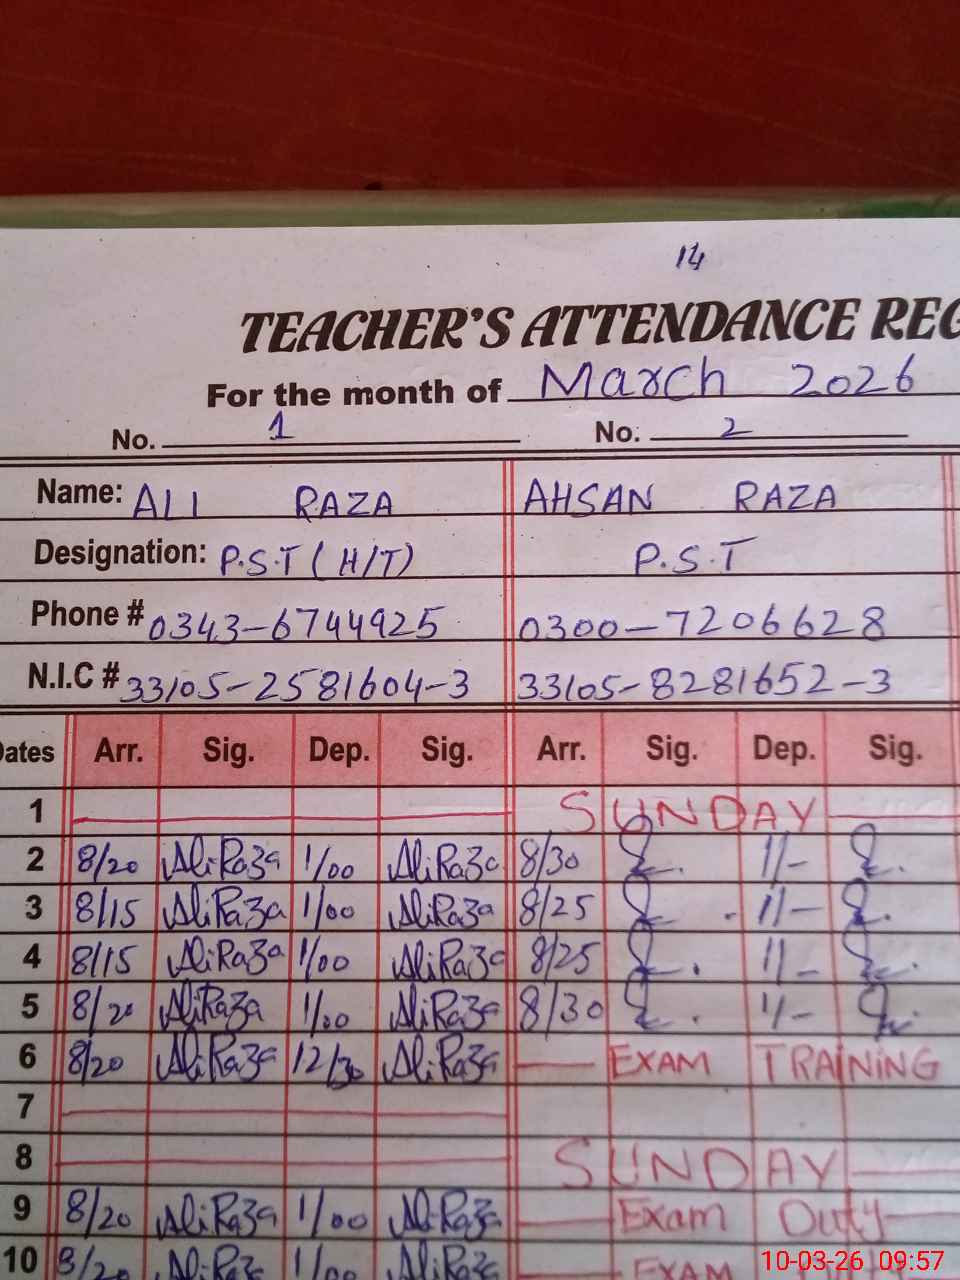 14
TEACHER'S ATTENDANCE REG
For the month of March 2026
No. 1 No. 2
Name: ALI RAZA AHSAN RAZA
Designation: P.S.T (H/T) P.S.T
Phone # 0343-6744925 0300-7206628
N.I.C # 33105-2581604-3 33105-8281652-3
Dates Arr. Sig. Dep. Sig. Arr. Sig. Dep. Sig.
1 SUNDAY
2 8/20 Ali Raza 1/00 Ali Raza 8/30 1/-
3 8/15 Ali Raza 1/00 Ali Raza 8/25 1/-
4 8/15 Ali Raza 1/00 Ali Raza 8/25 1/-
5 8/20 Ali Raza 1/00 Ali Raza 8/30 1/-
6 8/20 Ali Raza 12/30 Ali Raza EXAM TRAINING
7
8 SUNDAY
9 8/20 Ali Raza 1/00 Ali Raza Exam Duty
10 8/20 Ali Raza 1/00 Ali Raza EXAM
10-03-26 09:57